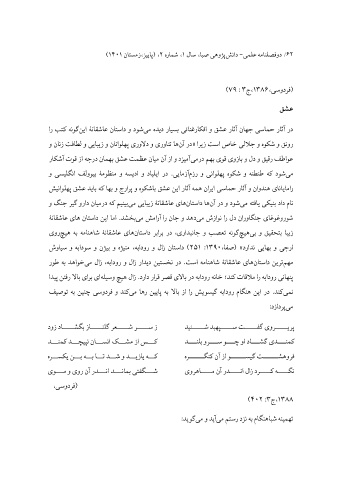 ۶۲/ دوفصلنامه علمی- دانش‌پژوهی صبا، سال ۱، شماره ۲، (پاییز،زمستان ۱۴۰۱)
(فردوسی،۱۳۸۶،ج۳: ۷۹)
عشق
در آثار حماسی جهان آثار عشق و افکارغنائی بسیار دیده می‌شود و داستان عاشقانهٔ این‌گونه کتب را
رونق و شکوه و جلالی خاص است زیرا «در آن‌ها تناوری و دلاوری پهلوانان و زیبایی و لطافت زنان و
عواطف رقیق و دل و بازوی قوی بهم درمی‌آمیزد و از آن میان عظمت عشق بهمان درجه از قوت آشکار
می‌شود که طنطنه و شکوه پهلوانی و رزم‌آزمایی. در ایلیاد و ادیسه و منظومهٔ بیولف انگلیسی و
رامایانای هندوان و آثار حماسی ایران همه آثار این عشق باشکوه و پرارج و بها که باید عشق پهلوانیش
نام داد بنیکی یافته می‌شود و در آن‌ها داستان‌های عاشقانهٔ زیبایی می‌بینیم که درمیان دارو گیر جنگ و
شوروغوغای جنگاوران دل را نوازش می‌دهد و جان را آرامش می‌بخشد. اما این داستان های عاشقانهٔ
زیبا بتحقیق و بی‌هیچ‌گونه تعصب و جانبداری، در برابر داستان‌های عاشقانهٔ شاهنامه به هیچ‌روی
ارجی و بهایی ندارد» (صفا،۱۳۹۰: ۲۵۱) داستان زال و رودابه، منیژه و بیژن و سودابه و سیاوش
مهم‌ترین داستان‌های عاشقانهٔ شاهنامه است. در نخستین دیدار زال و رودابه، زال می‌خواهد به طور
پنهانی رودابه را ملاقات کند؛ خانه رودابه در بالای قصر قرار دارد. زال هیچ وسیله‌ای برای بالا رفتن پیدا
نمی‌کند. در این هنگام رودابه گیسویش را از بالا به پایین رها می‌کند و فردوسی چنین به توصیف
می‌پردازد:
پریروی گفت سپهبد شنید ز سر شعر گلنار بگشاد زود
کمندی گشاد او چو سرو بلند کس از مشک انسان نپیچد کمند
فروهشت گیسو از آن کنگره که یازید و شد تا به بن یکسره
نگه کرد زال اندر آن ماهروی شگفتی بماند اندر آن روی و موی
(فردوسی،
۱۳۸۸،ج۳: ۴۰۲)
تهمینه شباهنگام به نزد رستم می‌آید و می‌گوید: